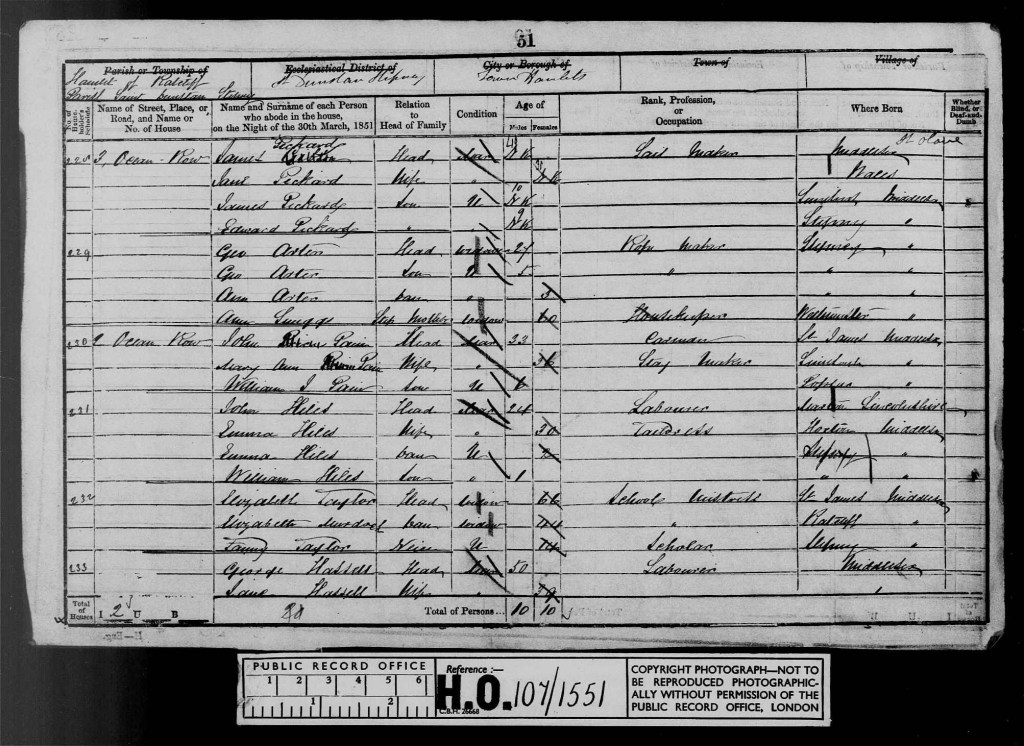 51
Parish or Township of Ecclesiastical District of City or Borough of Town of Village of
Hamlet of Ratcliff St Dunstan Stepney Tower Hamlets
Parish Saint Dunstan Stepney
No. of House-holder's Schedule Name of Street, Place, or Road, and Name or No. of House Name and Surname of each Person who abode in the house, on the Night of the 30th March, 1851 Relation to Head of Family Condition Age of Males Females Rank, Profession, or Occupation Where Born Whether Blind, or Deaf-and-Dumb
228 3 Ocean Row James Pickard Head Mar N K Sail Maker Middlesex
Jane Pickard Wife " N K Wales
James Pickard Son U 10 N K Middlesex
Edward Pickard " " 9 N K Stepney "
229 Geo Aster Head Widow 27 Rope Maker Stepney "
Geo Aster Son U 5 " " "
Ann Aster Dau " 3 " "
Ann Step Mother Widow 60 Housekeeper Westminster "
230 2 Ocean Row John Pain Head Mar 33 Carman St James Middlesex
Mary Ann Pain Wife " Stay Maker "
William J Pain Son U 6 Poplar "
231 John Hiles Head Mar 24 Labourer Lincolnshire
Emma Hiles Wife " 30 Tailoress Middlesex
Emma Hiles Dau U Stepney "
William Hiles Son " 1 " "
232 Elizabeth Taylor Head Widow 66 School Mistress St James Middlesex
Elizabeth Dau Widow 44 " Ratcliff "
Fanny Taylor Niece U 14 Scholar Stepney "
233 George Hassell Head Mar 50 Labourer Middlesex
Jane Hassell Wife " 59
Total of Houses I 2 U B Total of Persons... 10 10
PUBLIC RECORD OFFICE
1 2 3 4 5 6
1 2
Reference :—
H.O. 107/1551
C.B.H. 26668
COPYRIGHT PHOTOGRAPH—NOT TO
BE REPRODUCED PHOTOGRAPHIC-
ALLY WITHOUT PERMISSION OF THE
PUBLIC RECORD OFFICE, LONDON